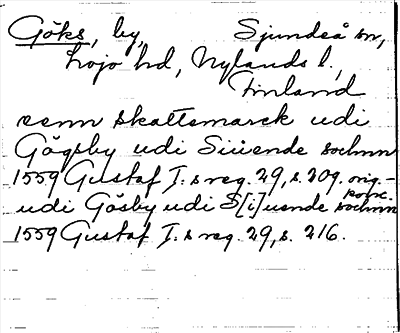 Göks, by, Sjundeå sn,
Lojo hd, Nylands l,
Finland
renn skattsmarck udi
Gögsby udi Siüende sochnn
1559 Gustaf I:s reg. 29, s. 209. orig.-
konc.
udi Gösby udi S[i]uende sochnn
1559 Gustaf I:s reg. 29, s. 216.